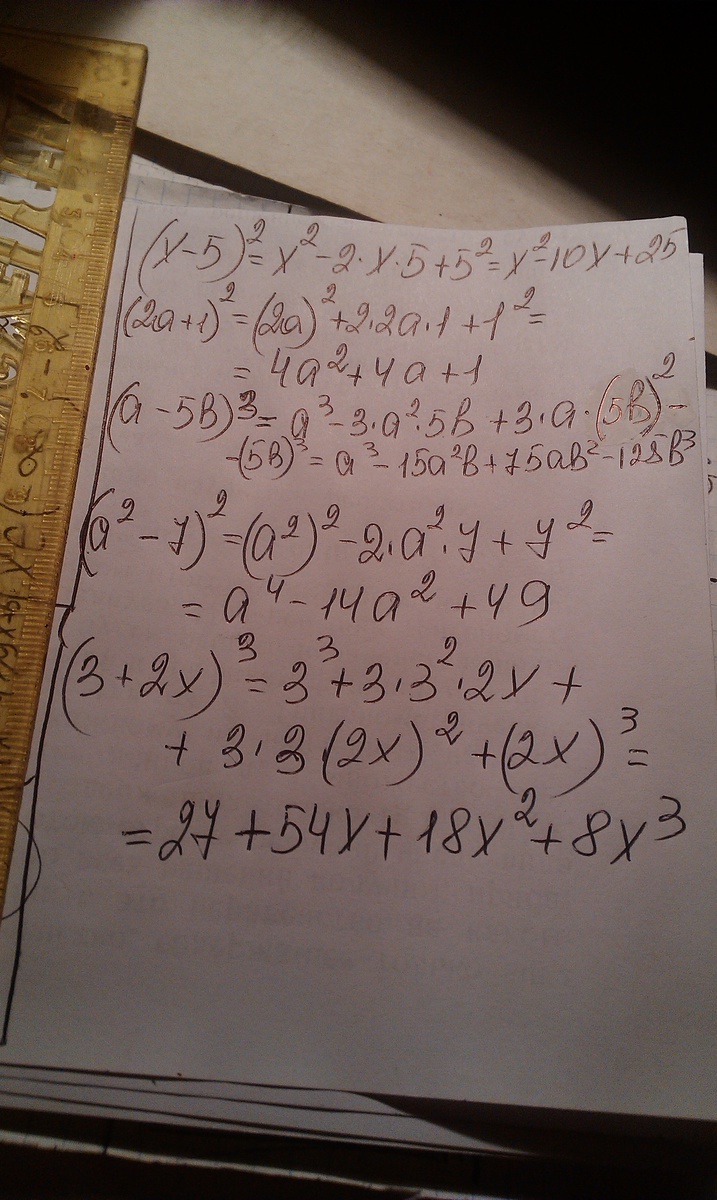 (x-5)²=x²-2·x·5+5²=x²-10x+25
(2a+1)²=(2a)²+2·2a·1+1²=
=4a²+4a+1
(a-5b)³=a³-3·a²·5b+3·a·(5b)²-
-(5b)³=a³-15a²b+75ab²-125b³
(a²-7)²=(a²)²-2·a²·7+7²=
=a⁴-14a²+49
(3+2x)³=3³+3·3²·2x+
+3·3(2x)²+(2x)³=
=27+54x+18x²+8x³